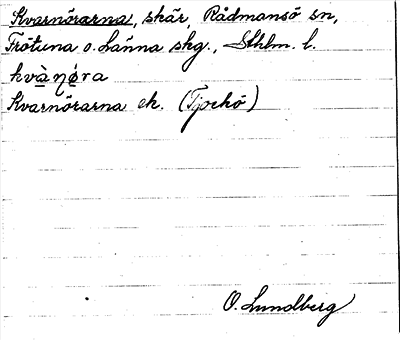 Kvarnörarna, skär, Rådmansö sn,
Frötuna o. Länna skg., Sthlm. l.
kvànø̀ra
Kvarnörarna ek. (Tjockö)
O. Lundberg